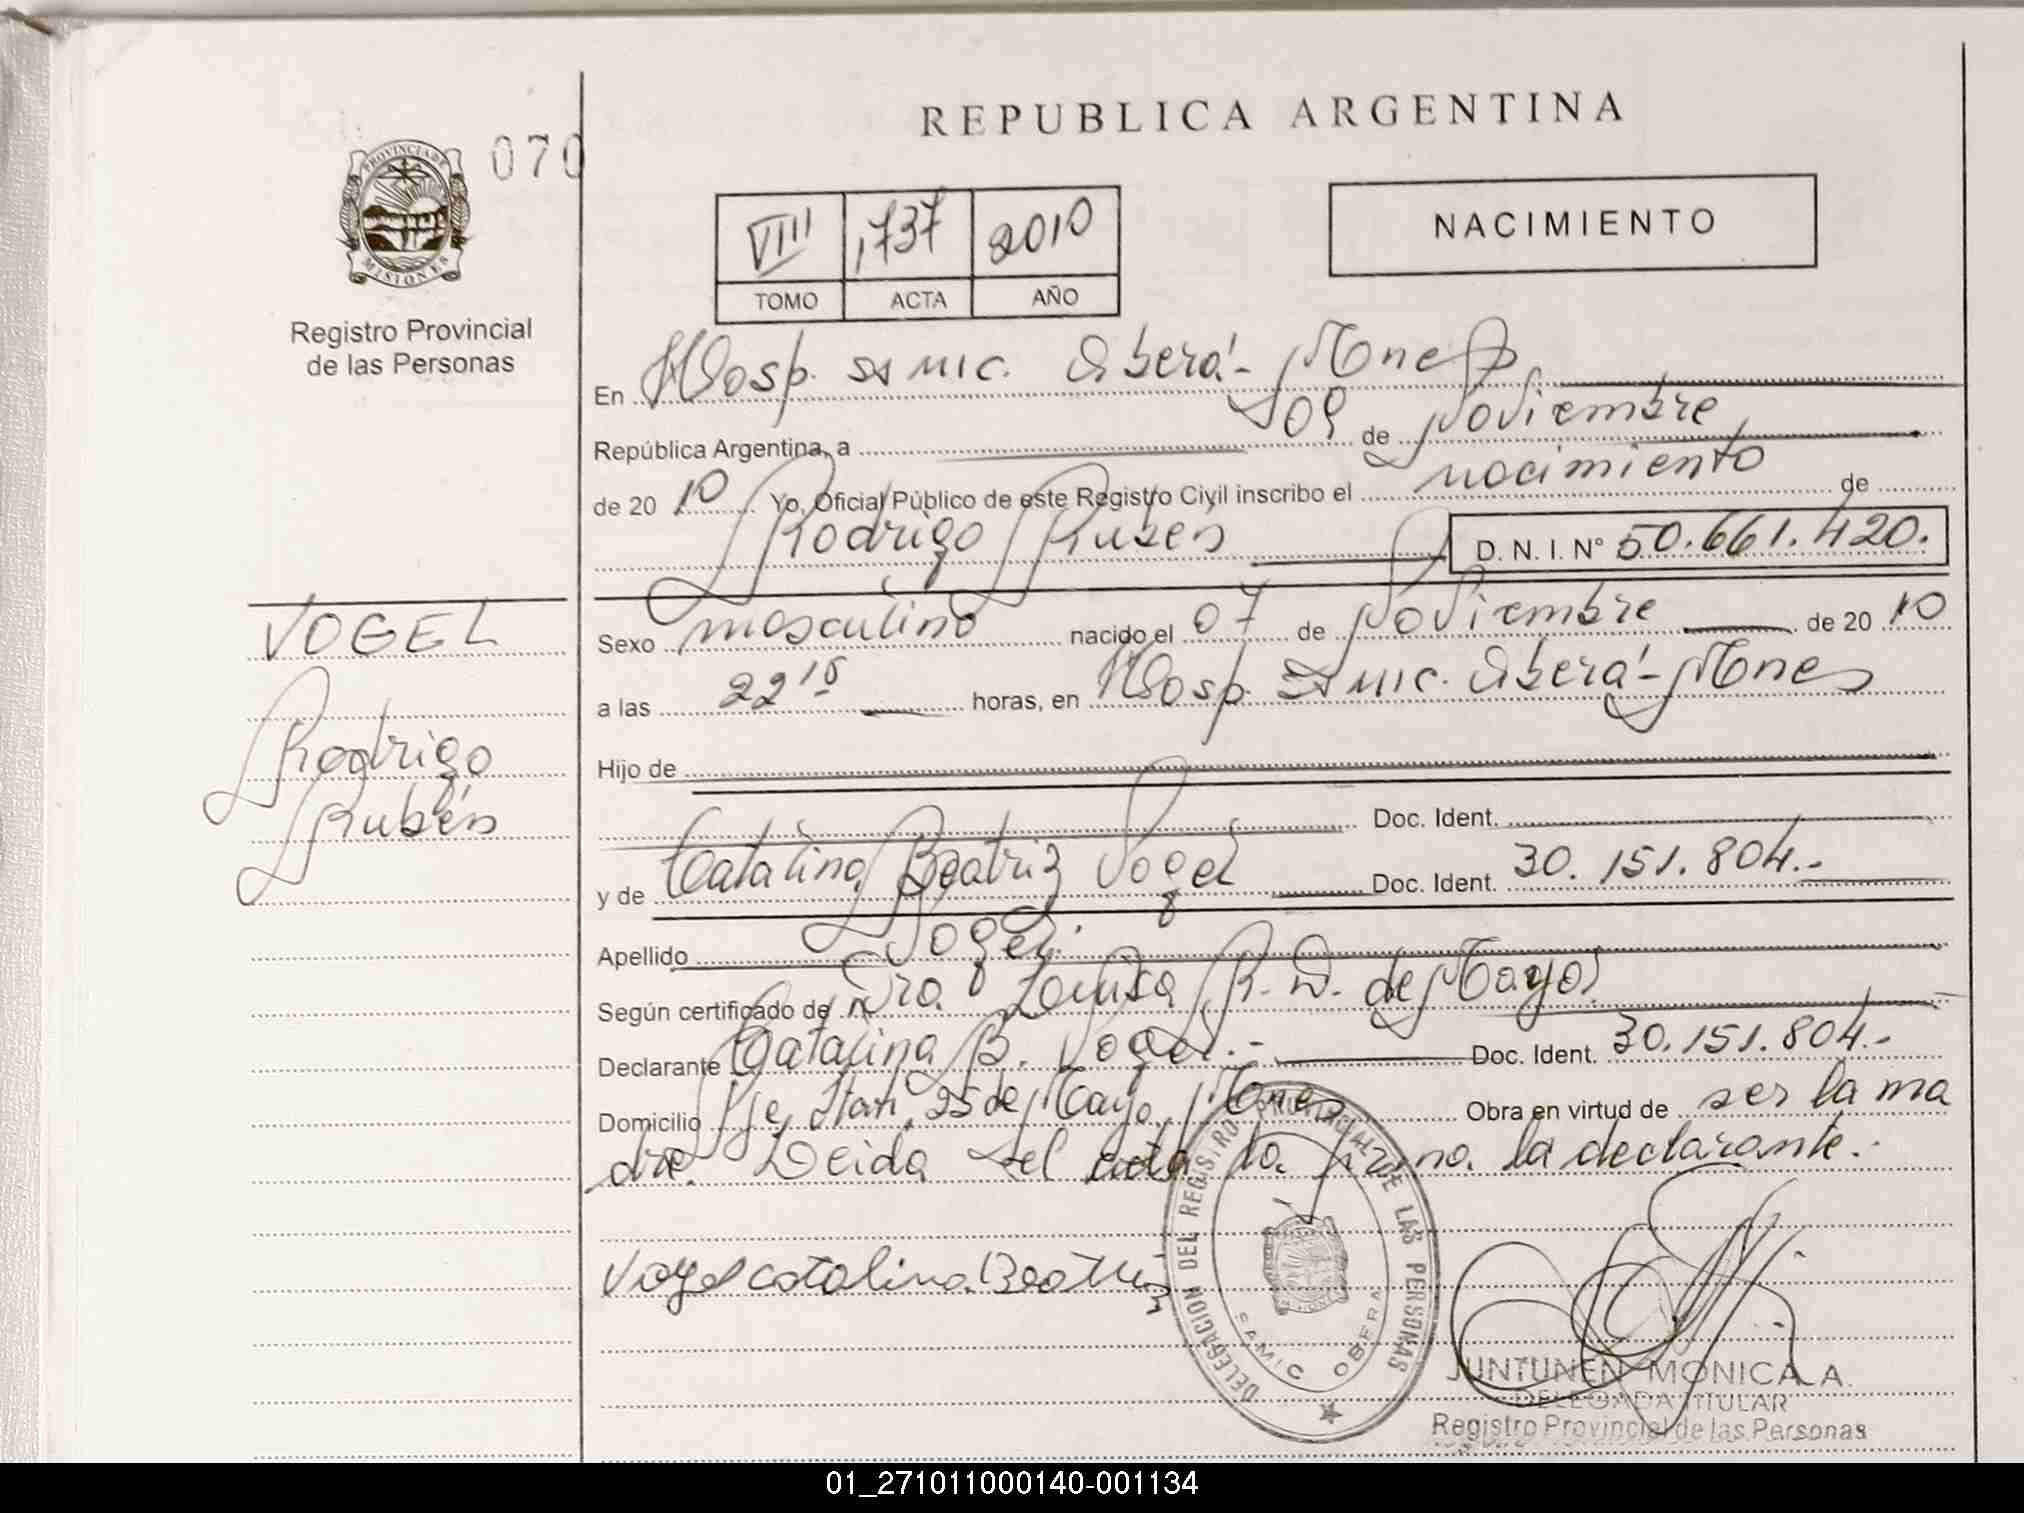 REPUBLICA ARGENTINA
070
PROVINCIA DE
MISIONES
Registro Provincial
de las Personas
VIII ,737 2010
TOMO ACTA AÑO
NACIMIENTO
En Hosp. SAMIC. Oberá - Mones
República Argentina, a 09 de Noviembre
de 2010 Yo, Oficial Público de este Registro Civil inscribo el nacimiento de
Rodrigo Rubén D. N. I. N° 50.661.420.
VOGEL
Rodrigo
Rubén
Sexo masculino nacido el 07 de Noviembre de 2010
a las 22 15 horas, en Hosp. SAMIC. Oberá - Mones
Hijo de
Doc. Ident.
y de Catalina Beatriz Vogel Doc. Ident. 30.151.804.-
Apellido Vogel.
Según certificado de Dra. R. D. de Mayol
Declarante Catalina B. Vogel.- Doc. Ident. 30.151.804.-
Domicilio Pje. Itatí, 25 de Mayo, Mones Obra en virtud de ser la ma
dre. Leida el acta la firma la declarante.-
Vogel catalina Beatriz
DELEGACION DEL REGISTRO PROVINCIAL DE LAS PERSONAS
SAMIC OBERA
JUNTUNEN MONICA A.
DELEGADA TITULAR
Registro Provincial de las Personas
01_271011000140-001134